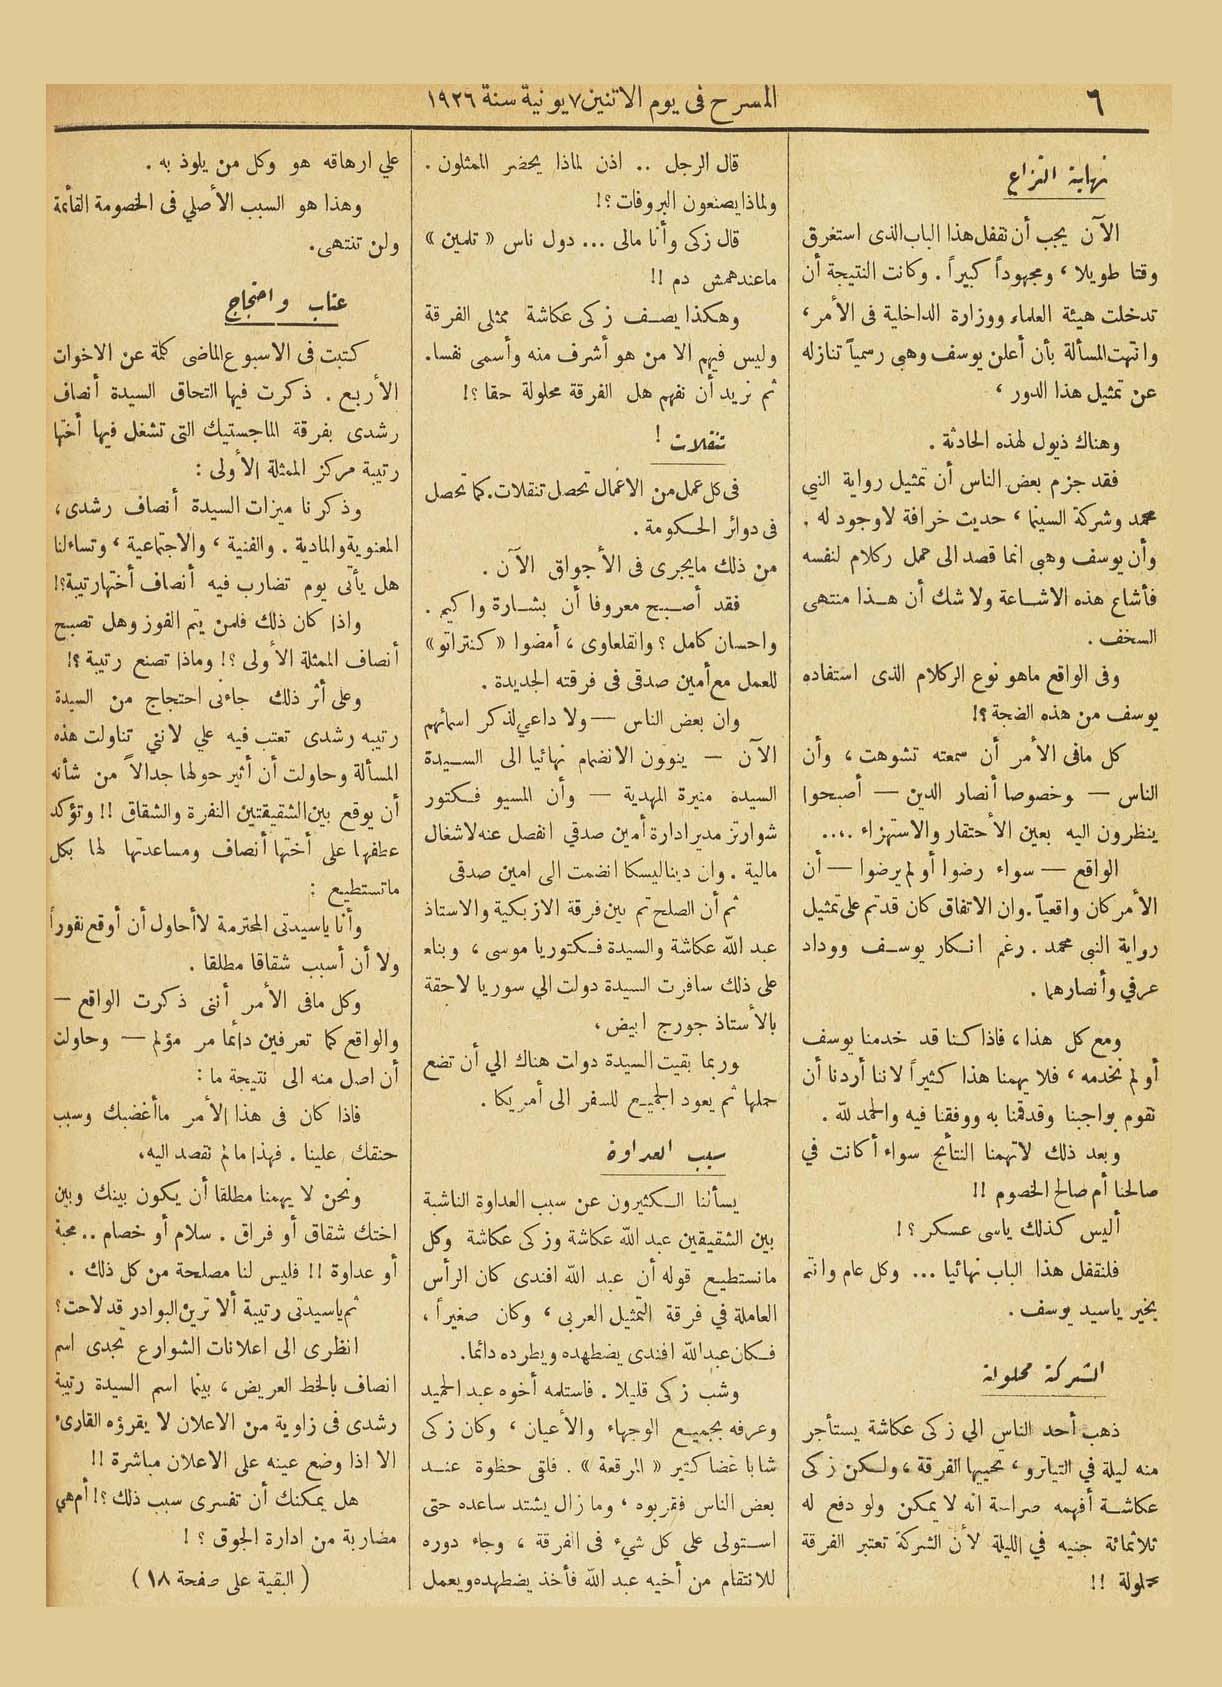 ٦
المسرح فى يوم الاتنين ٧ يونية سنة ١٩٢٦
نهاية النزاع
الآن يجب أن نقفل هذا الباب الذى استغرق
وقتا طويلا ، ومجهوداً كبيراً . وكانت النتيجة أن
تدخلت هيئة العلماء ووزارة الداخلية فى الأمر ،
وانتهت المسألة بأن أعلن يوسف وهبى رسمياً تنازله
عن تمثيل هذا الدور ،
وهناك ذيول لهذه الحادثة .
فقد جزم بعض الناس أن تمثيل رواية النبي
محمد وشركة السينما ، حديث خرافة لاوجود له .
وأن يوسف وهبى انما قصد الى عمل ركلام لنفسه
فأشاع هذه الاشاعة ولا شك أن هذا منتهى
السخف .
وفى الواقع ماهو نوع الركلام الذى استفاده
يوسف من هذه الضجة ؟!
كل مافى الأمر أن سمعته تشوهت ، وأن
الناس — وخصوصا أنصار الدين — أصبحوا
ينظرون اليه بعين الأحتقار والاستهزاء ....
الواقع — سواء رضوا أو لم يرضوا — أن
الأمر كان واقعياً . وان الاتفاق كان قد تم على تمثيل
رواية النبى محمد . رغم انكار يوسف ووداد
عرفي وأنصارهما .
ومع كل هذا ، فاذا كنا قد خدمنا يوسف
أو لم نخدمه ، فلا يهمنا هذا كثيراً لاننا أردنا أن
نقوم بواجبنا وقد قمنا به ووفقنا فيه والحمد لله .
وبعد ذلك لاتهمنا النتأئج سواء أكانت في
صالحنا أم صالح الخصوم !!
أليس كذلك ياسى عسكر ؟!
فلنقفل هذا الباب نهائيا ... وكل عام وانتم
بخير ياسيد يوسف .
الشركة محلولة
ذهب أحد الناس الي زكى عكاشة يستأجر
منه ليلة في التياترو ، تحييها الفرقة ، ولكن زكى
عكاشة أفهمه صراحة انه لا يمكن ولو دفع له
ثلاثمائة جنيه في الليلة لأن الشركة تعتبر الفرقة
محلولة !!
قال الرجل .. اذن لماذا يحضر الممثلون .
ولماذا يصنعون البروفات ؟!
قال زكى وأنا مالى ... دول ناس « تلمين »
ماعندهمش دم !!
وهكذا يصف زكى عكاشة ممثلى الفرقة
وليس فيهم الا من هو أشرف منه وأسمى نفسا .
ثم نريد أن نفهم هل الفرقة محلولة حقا ؟!
تنقلات !
فى كل عمل من الاعمال تحصل تنقلات . كما تحصل
فى دوائر الحكومة .
من ذلك مايجرى فى الأجواق الآن .
فقد أصبح معروفا أن بشارة واكيم .
واحسان كامل ؟ وانقلعاوى ، أمضوا « كنتراتو »
للعمل مع أمين صدقى فى فرقته الجديدة .
وان بعض الناس — ولا داعي لذكر اسمائهم
الآن — ينوون الانضمام نهائيا الى السيدة
السيدة منيرة المهدية — وأن المسيو فكتور
شوارتز مدير ادارة أمين صدقي انفصل عنه لاشغال
مالية . وان ديناليسكا انضمت الى امين صدقى
ثم أن الصلح تم بين فرقة الازبكية والاستاذ
عبد الله عكاشة والسيدة فكتوريا موسى ، وبناء
على ذلك سافرت السيدة دولت الي سوريا لاحقة
بالأستاذ جورج ابيض .
وربما بقيت السيدة دولت هناك الي أن تضع
حملها ثم يعود الجميع للسفر الى أمريكا .
سبب العداوة
يسألنا الكثيرون عن سبب العداوة الناشبة
بين الشقيقين عبد الله عكاشة وزكى عكاشة وكل
مانستطيع قوله أن عبد الله افندى كان الرأس
العاملة في فرقة التمثيل العربى ، وكان صغيراً ،
فكان عبد الله افندى يضطهده ويطرده دائما .
وشب زكى قليلا . فاستلمه أخوه عبد الحميد
وعرفه بجميع الوجهاء والأعيان ، وكان زكى
شابا غضا كثير « المرقعة » . فلقى حظوة عند
بعض الناس فقربوه ، وما زال يشتد ساعده حتى
استولى على كل شيء فى الفرقة ، وجاء دوره
للانتقام من أخيه عبد الله فأخذ يضطهده ويعمل
علي ارهاقه هو وكل من يلوذ به .
وهذا هو السبب الأصلي فى الخصومة القأئمة
ولن تنتهى .
عتاب واحتجاج
كتبت فى الاسبوع الماضى كلمة عن الاخوات
الأربع . ذكرت فيها التحاق السيدة أنصاف
رشدى بفرقة الماجستيك التى تشغل فيها أختها
رتيبة مركز الممثلة الأولى :
وذكرنا ميزات السيدة أنصاف رشدى ،
المعنوية والمادية . والفنية ، والاجتماعية ، وتساءلنا
هل يأتى يوم تضارب فيه أنصاف أختها رتيبة ؟!
واذا كان ذلك فلمن يتم الفوز وهل تصبح
أنصاف الممثلة الأولى ؟! وماذا تصنع رتيبة ؟!
وعلى أثر ذلك جاءنى احتجاج من السيدة
رتيبه رشدى تعتب فيه علي لاننى تناولت هذه
المسألة وحاولت أن أثير حولها جدالاً من شأنه
أن يوقع بين الشقيقتين النفرة والشقاق !! وتؤكد
عطفها على أختها أنصاف ومساعدتها لها بكل
ماتستطيع :
وأنا ياسيدتى المحترمة لا أحاول أن أوقع نفوراً
ولا أن أسبب شقاقا مطلقا .
وكل مافى الأمر أننى ذكرت الواقع —
والواقع كما تعرفين دائما مر مؤلم — وحاولت
أن اصل منه الى نتيجة ما :
فاذا كان فى هذا الأمر ماأغضبك وسبب
حنقك علينا . فهذا مالم نقصد اليه .
ونحن لا يهمنا مطلقا أن يكون بينك وبين
اختك شقاق أو فراق . سلام أو خصام .. محبة
أو عداوة !! فليس لنا مصلحة من كل ذلك .
ثم ياسيدتى رتيبة ألا ترين البوادر قد لاحت ؟
انظرى الى اعلانات الشوارع تجدى اسم
انصاف بالخط العريض ، بينما اسم السيدة رتيبة
رشدى فى زاوية من الاعلان لا يقرؤه القارىء
الا اذا وضع عينه على الاعلان مباشرة !!
هل يمكنك أن تفسرى سبب ذلك ؟! أم هي
مضاربة من ادارة الجوق ؟ !
( البقية على صفحة ١٨ )